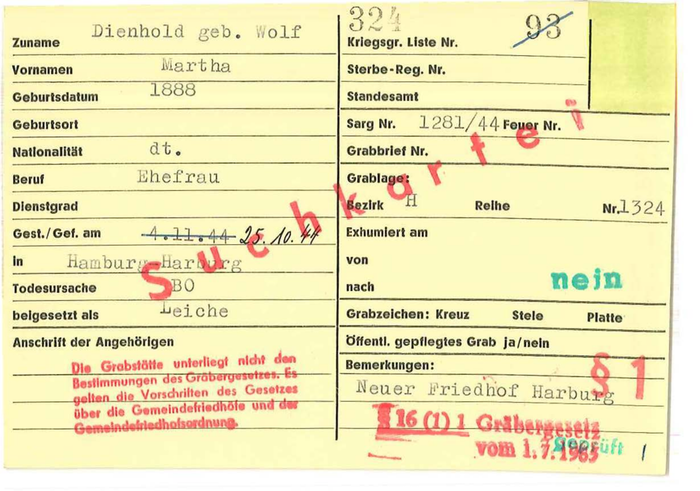 Zuname Dienhold geb. Wolf
Vornamen Martha
Geburtsdatum 1888
Geburtsort
Nationalität dt.
Beruf Ehefrau
Dienstgrad
Gest./Gef. am 4.11.44 25.10.44
in Hamburg-Harburg
Todesursache BO
beigesetzt als Leiche
Anschrift der Angehörigen
Die Grabstätte unterliegt nicht den
Bestimmungen des Gräbergesetzes. Es
gelten die Vorschriften des Gesetzes
über die Gemeindefriedhöfe und der
Gemeindefriedhofsordnung.
Suchkartei
324 93
Kriegsgr. Liste Nr.
Sterbe-Reg. Nr.
Standesamt
Sarg Nr. 1281/44 Feuer Nr.
Grabbrief Nr.
Grablage:
Bezirk H Reihe Nr. 1324
Exhumiert am
von
nach nein
Grabzeichen: Kreuz Stele Platte
Öffentl. gepflegtes Grab ja/nein
Bemerkungen: § 1
Neuer Friedhof Harburg
§ 16 (1) 1 Gräbergesetz
vom 1.7.1965 geprüft 1